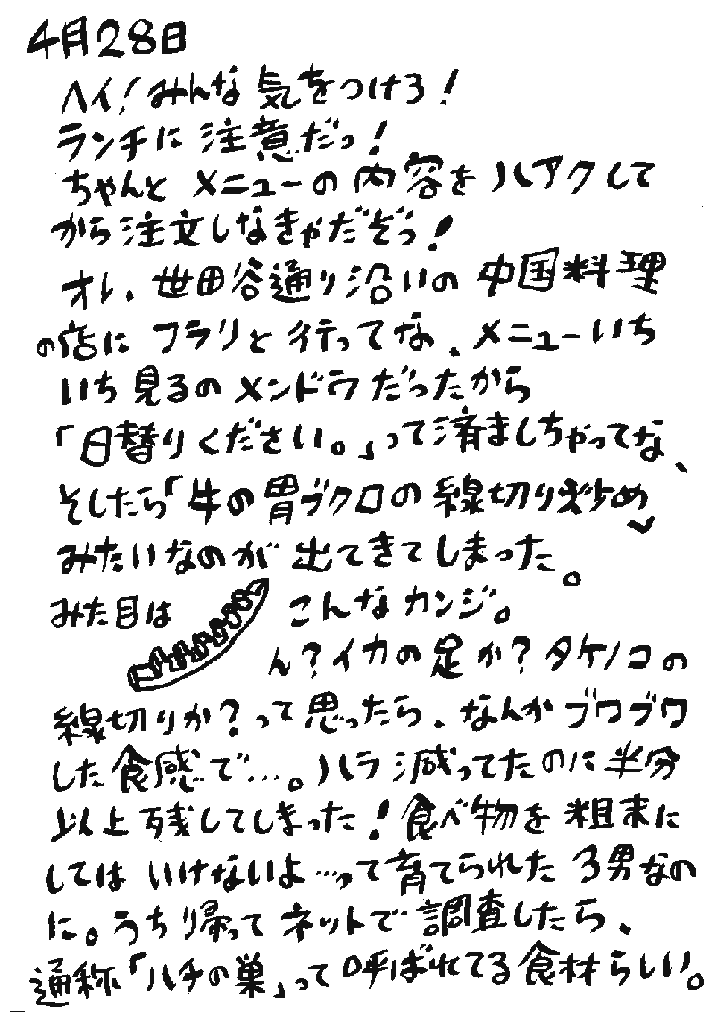 4月28日
ヘイ!みんな気をつけろ!
ランチに注意だっ!
ちゃんとメニューの内容をハアクして
から注文しなきゃだぞっ!
オレ、世田谷通り沿いの中国料理
の店にフラリと行ってな、メニューいち
いち見るのメンドウだったから
「日替りください。」って済ましちゃってな、
そしたら「牛の胃ブクロの線切り炒め」
みたいなのが出てきてしまった。
みた目は こんなカンジ。
ん?イカの足か?タケノコの
線切りか?って思ったら、なんかブワブワ
した食感で…。ハラ減ってたのに半分
以上残してしまった!食べ物を粗末に
してはいけないよ…って育てられた3男なの
に。うち帰ってネットで調査したら、
通称「ハチの巣」って呼ばれてる食材らしい。